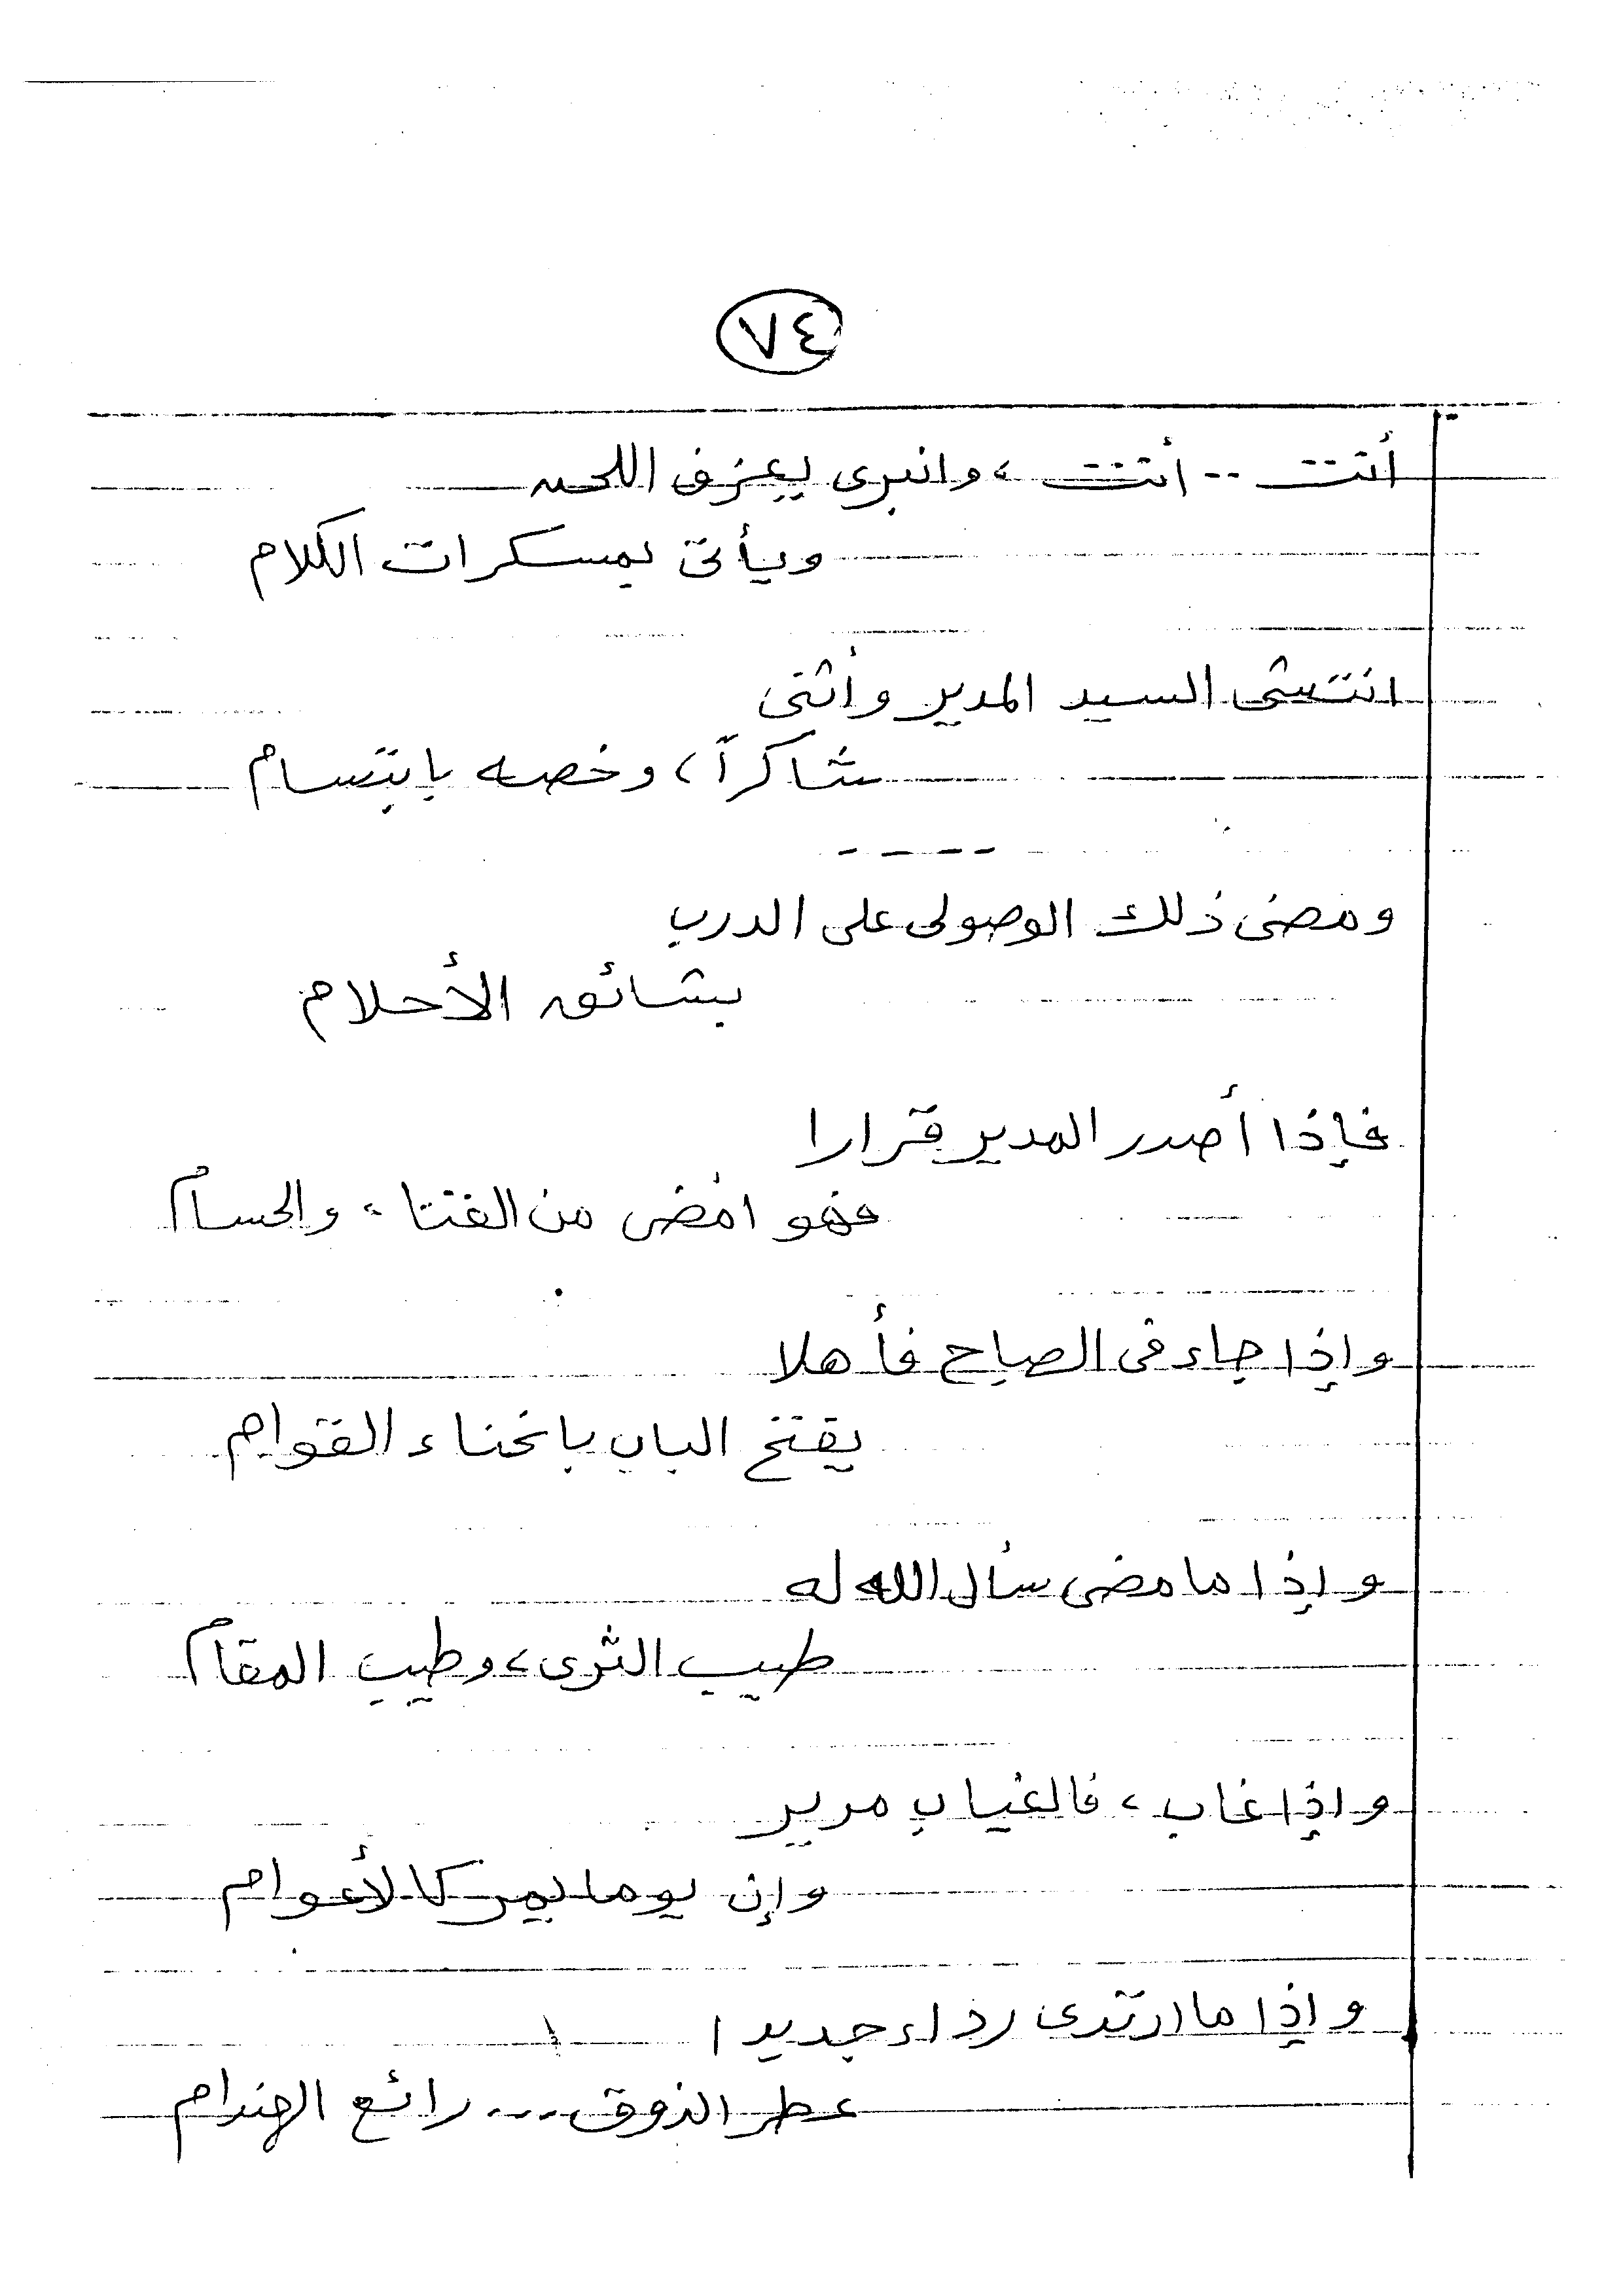 ٧٤
أنت .. أنت ، وانبرى يعزف اللحن
ويأتى بمسكرات الكلام
انتشى السيد المدير وأثنى
شاكراً ، وخصه بابتسام
- - - -
ومضى ذلك الوصولى على الدرب
بشائق الأحلام
فإذا أصدر المدير قرارا
فهو أمضى من القنا ، والحسام
وإذا جاء فى الصباح فأهلا
يفتح الباب بانحناء القوام
وإذا ما مضى سأل الله له
طيب الثرى ، وطيب المقام
وإذا غاب ، فالغياب مرير
وإن يوما يمر كالأعوام
وإذا ما ارتدى رداء جديدا
عطر الذوق ... رائع الهندام